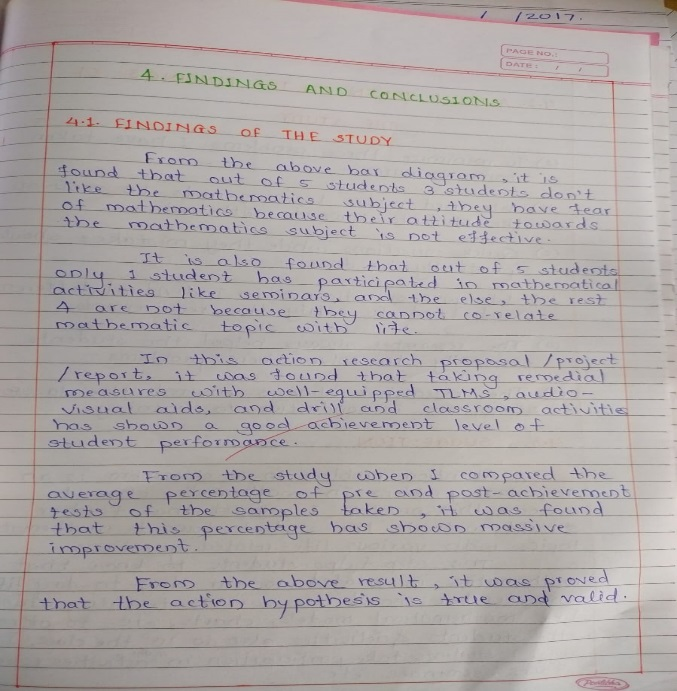 / /2017.
PAGE NO.:
DATE: / /
4. FINDINGS AND CONCLUSIONS
4.1. FINDINGS OF THE STUDY
From the above bar diagram, it is
found that out of 5 students 3 students don't
like the mathematics subject, they have fear
of mathematics because their attitude towards
the mathematics subject is not effective.
It is also found that out of 5 students
only 1 student has participated in mathematical
activities like seminars, and the else, the rest
4 are not because they cannot co-relate
mathematic topic with life.
In this action research proposal /project
/report, it was found that taking remedial
measures with well-equipped TLMs, audio-
visual aids, and drill and classroom activities
has shown a good achievement level of
student performance.
From the study when I compared the
average percentage of pre and post-achievement
tests of the samples taken, it was found
that this percentage has shown massive
improvement.
From the above result, it was proved
that the action hypothesis is true and valid.